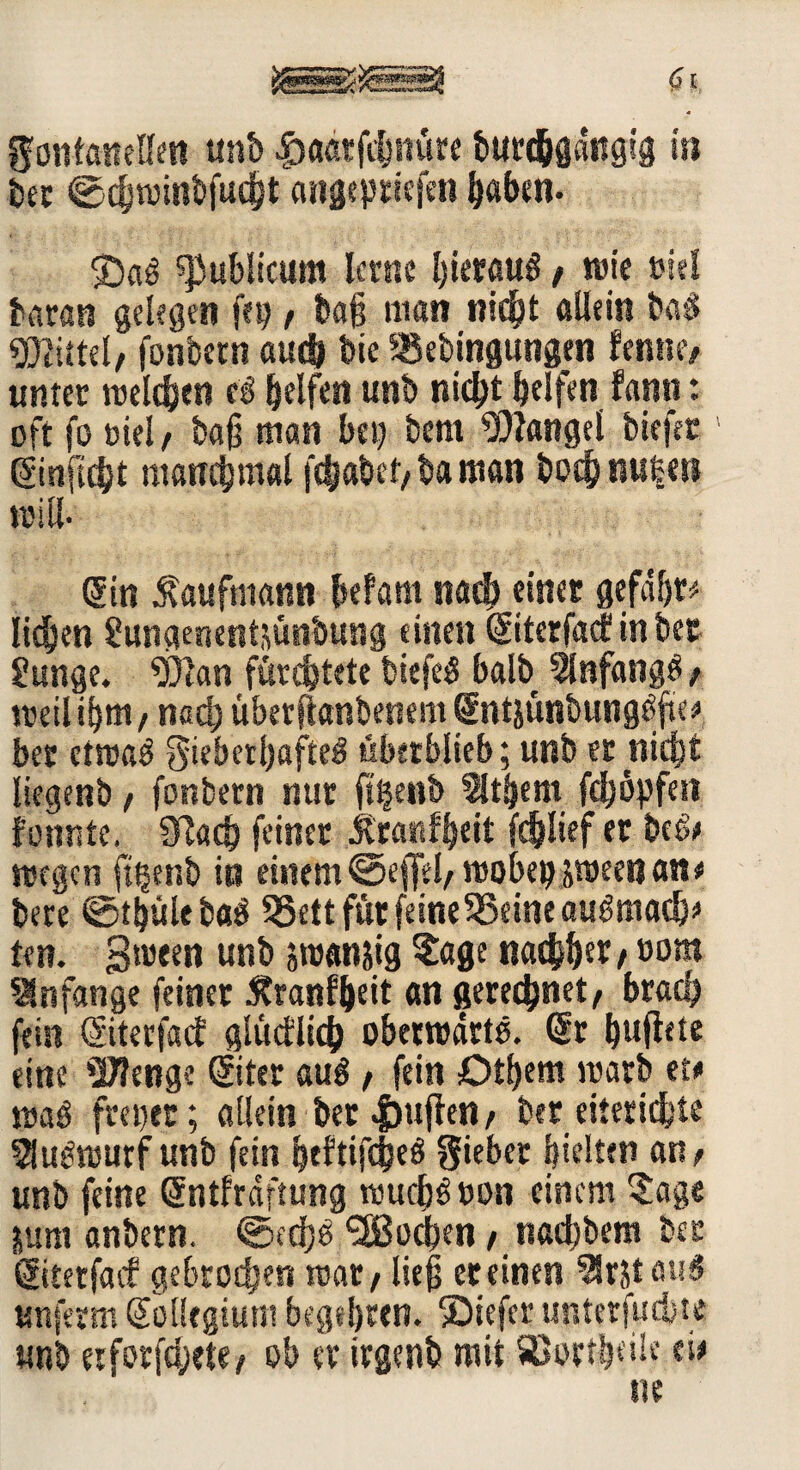 61
Fontanellen und Haarschnüre durchgängig in
der Schwindsucht angepriesen haben.
Das Publicum lerne hieraus, wie viel
daran gelegen sey, daß man nicht allein das
Mittel, sondern auch die Bedingungen kenne,
unter welchen es helfen und nicht helfen kann:
oft so viel, daß man bey dem Mangel dieser
Einsicht manchmal schadet, da man doch nutzen
will.
Ein Kaufmann bekam nach einer gefähr-
lichen Lungenentzündung einen Eitersack in der
Lunge. Man fürchtete dieses bald Anfangs,
weil ihm, nach überstandenem Entzündungsfie-
ber etwas Fieberhaftes überblieb; und er nicht
liegend, sondern nur sitzend Athem schöpfen
konnte. Nach seiner Krankheit schlief er des-
wegen sitzend in einem Sessel, wobey zween an-
dere Sthüle das Bett für seine Beine ausmach-
ten. Zween und zwanzig Tage nachher, vom
Anfange seiner Krankheit an gerechnet, brach
sein Eitersack glücklich oberwärts. Er hustete
eine Menge Eiter aus, sein Othem ward et-
was freyer; allein der Husten, der eiterichte
Auswurf und sein hektisches Fieber hielten an,
und seine Entkräftung wuchs von einem Tage
zum andern. Sechs Wochen, nachdem der
Eitersack gebrochen war, ließ er einen Arzt aus
unserm Collegium begehren. Dieser untersuchte
und erforschete, ob er irgend mit Vortheile ei-
ne